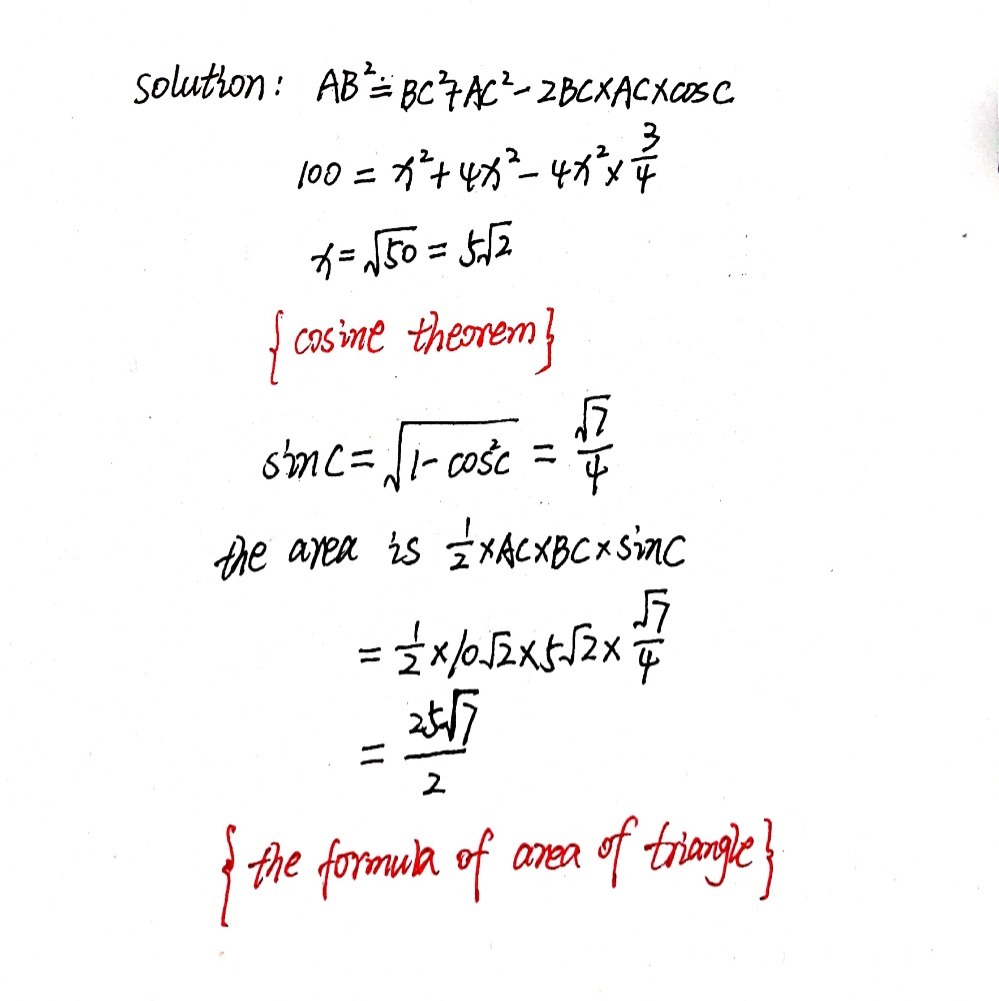 solution: AB²=BC²+AC²-2BC×AC×cosC
100 = x²+4x²-4x²×3/4
x=√50=5√2
{cosine theorem}
sinC=√(1-cos²C)=√7/4
the area is 1/2×AC×BC×sinC
=1/2×10√2×5√2×√7/4
=25√7/2
{the formula of area of triangle}